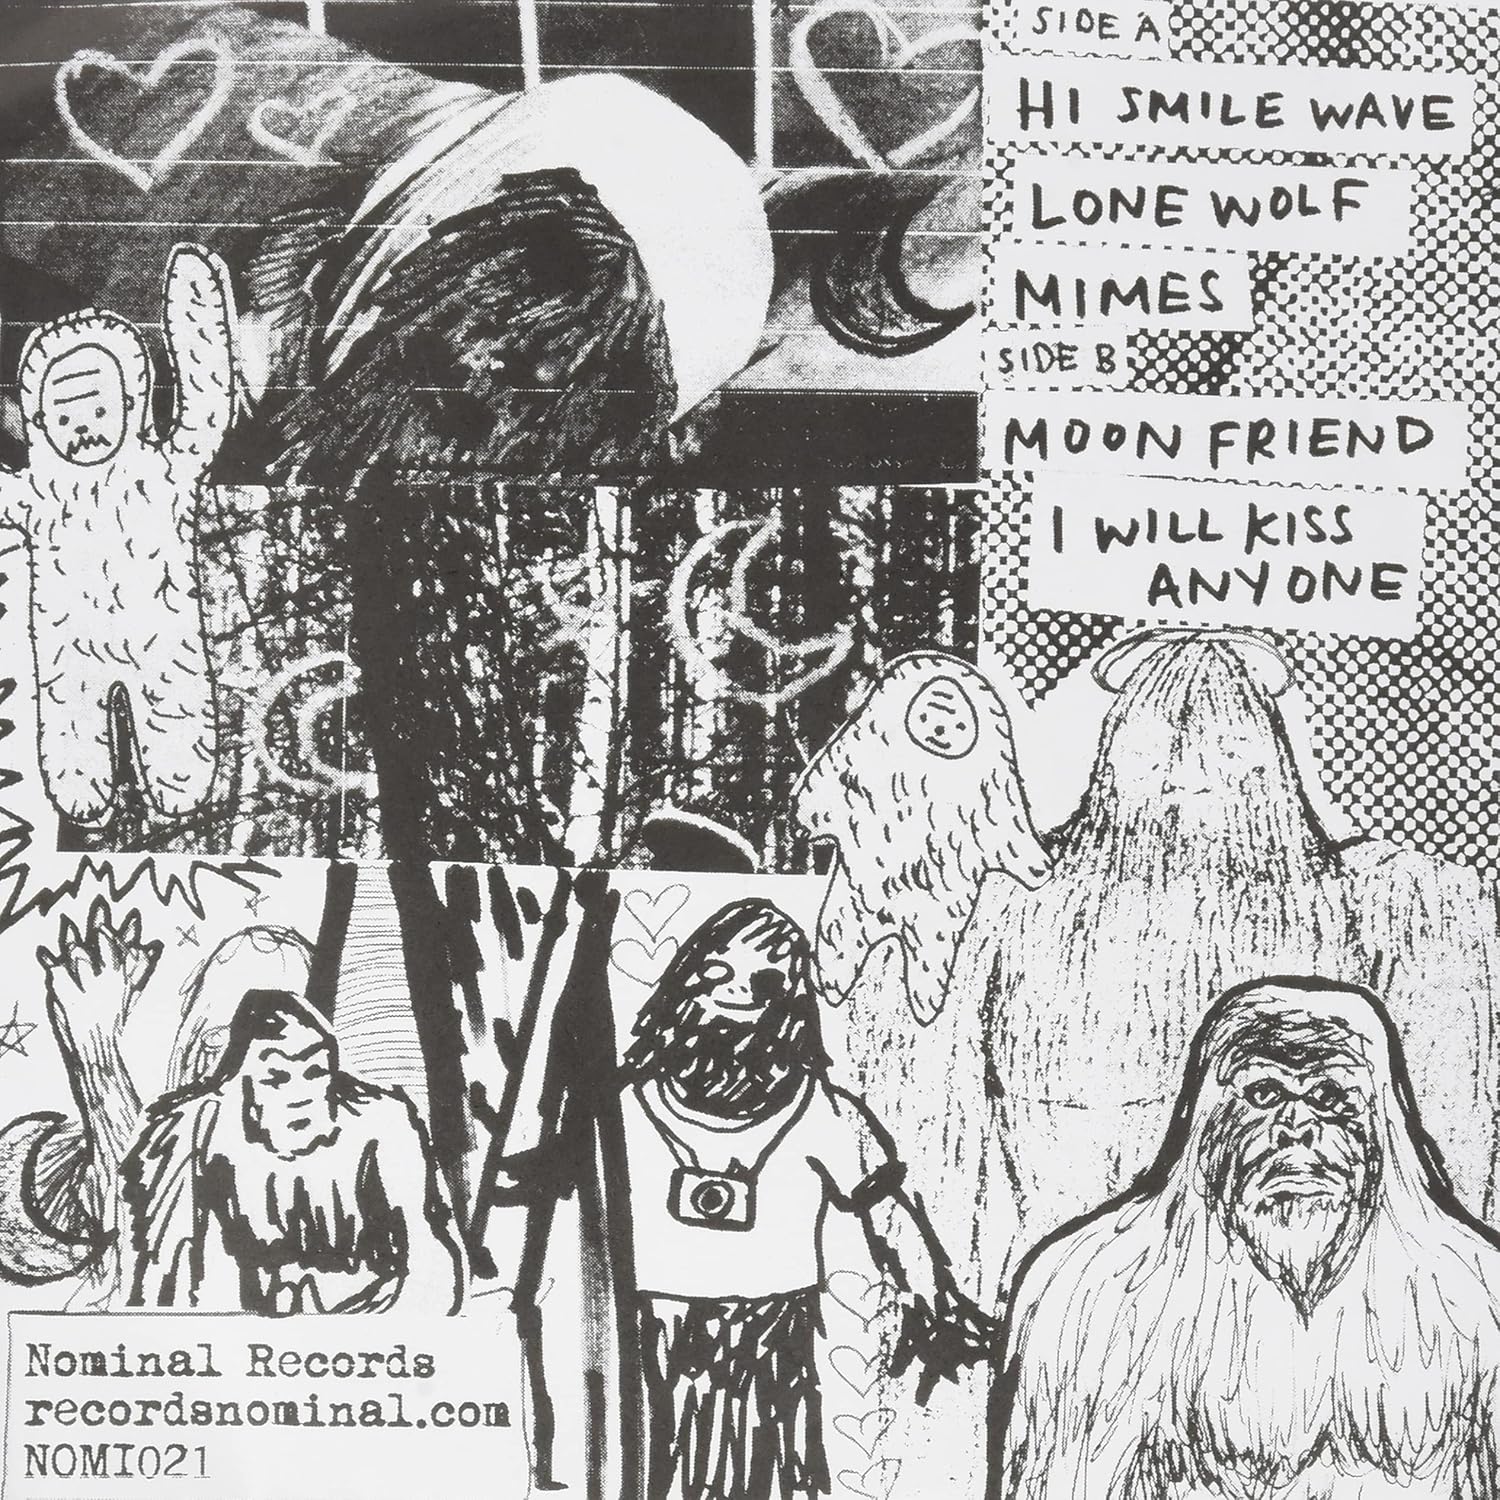 SIDE A
HI SMILE WAVE
LONE WOLF
MIMES
SIDE B
MOON FRIEND
I WILL KISS
ANYONE
Nominal Records
recordsnominal.com
NOMI021